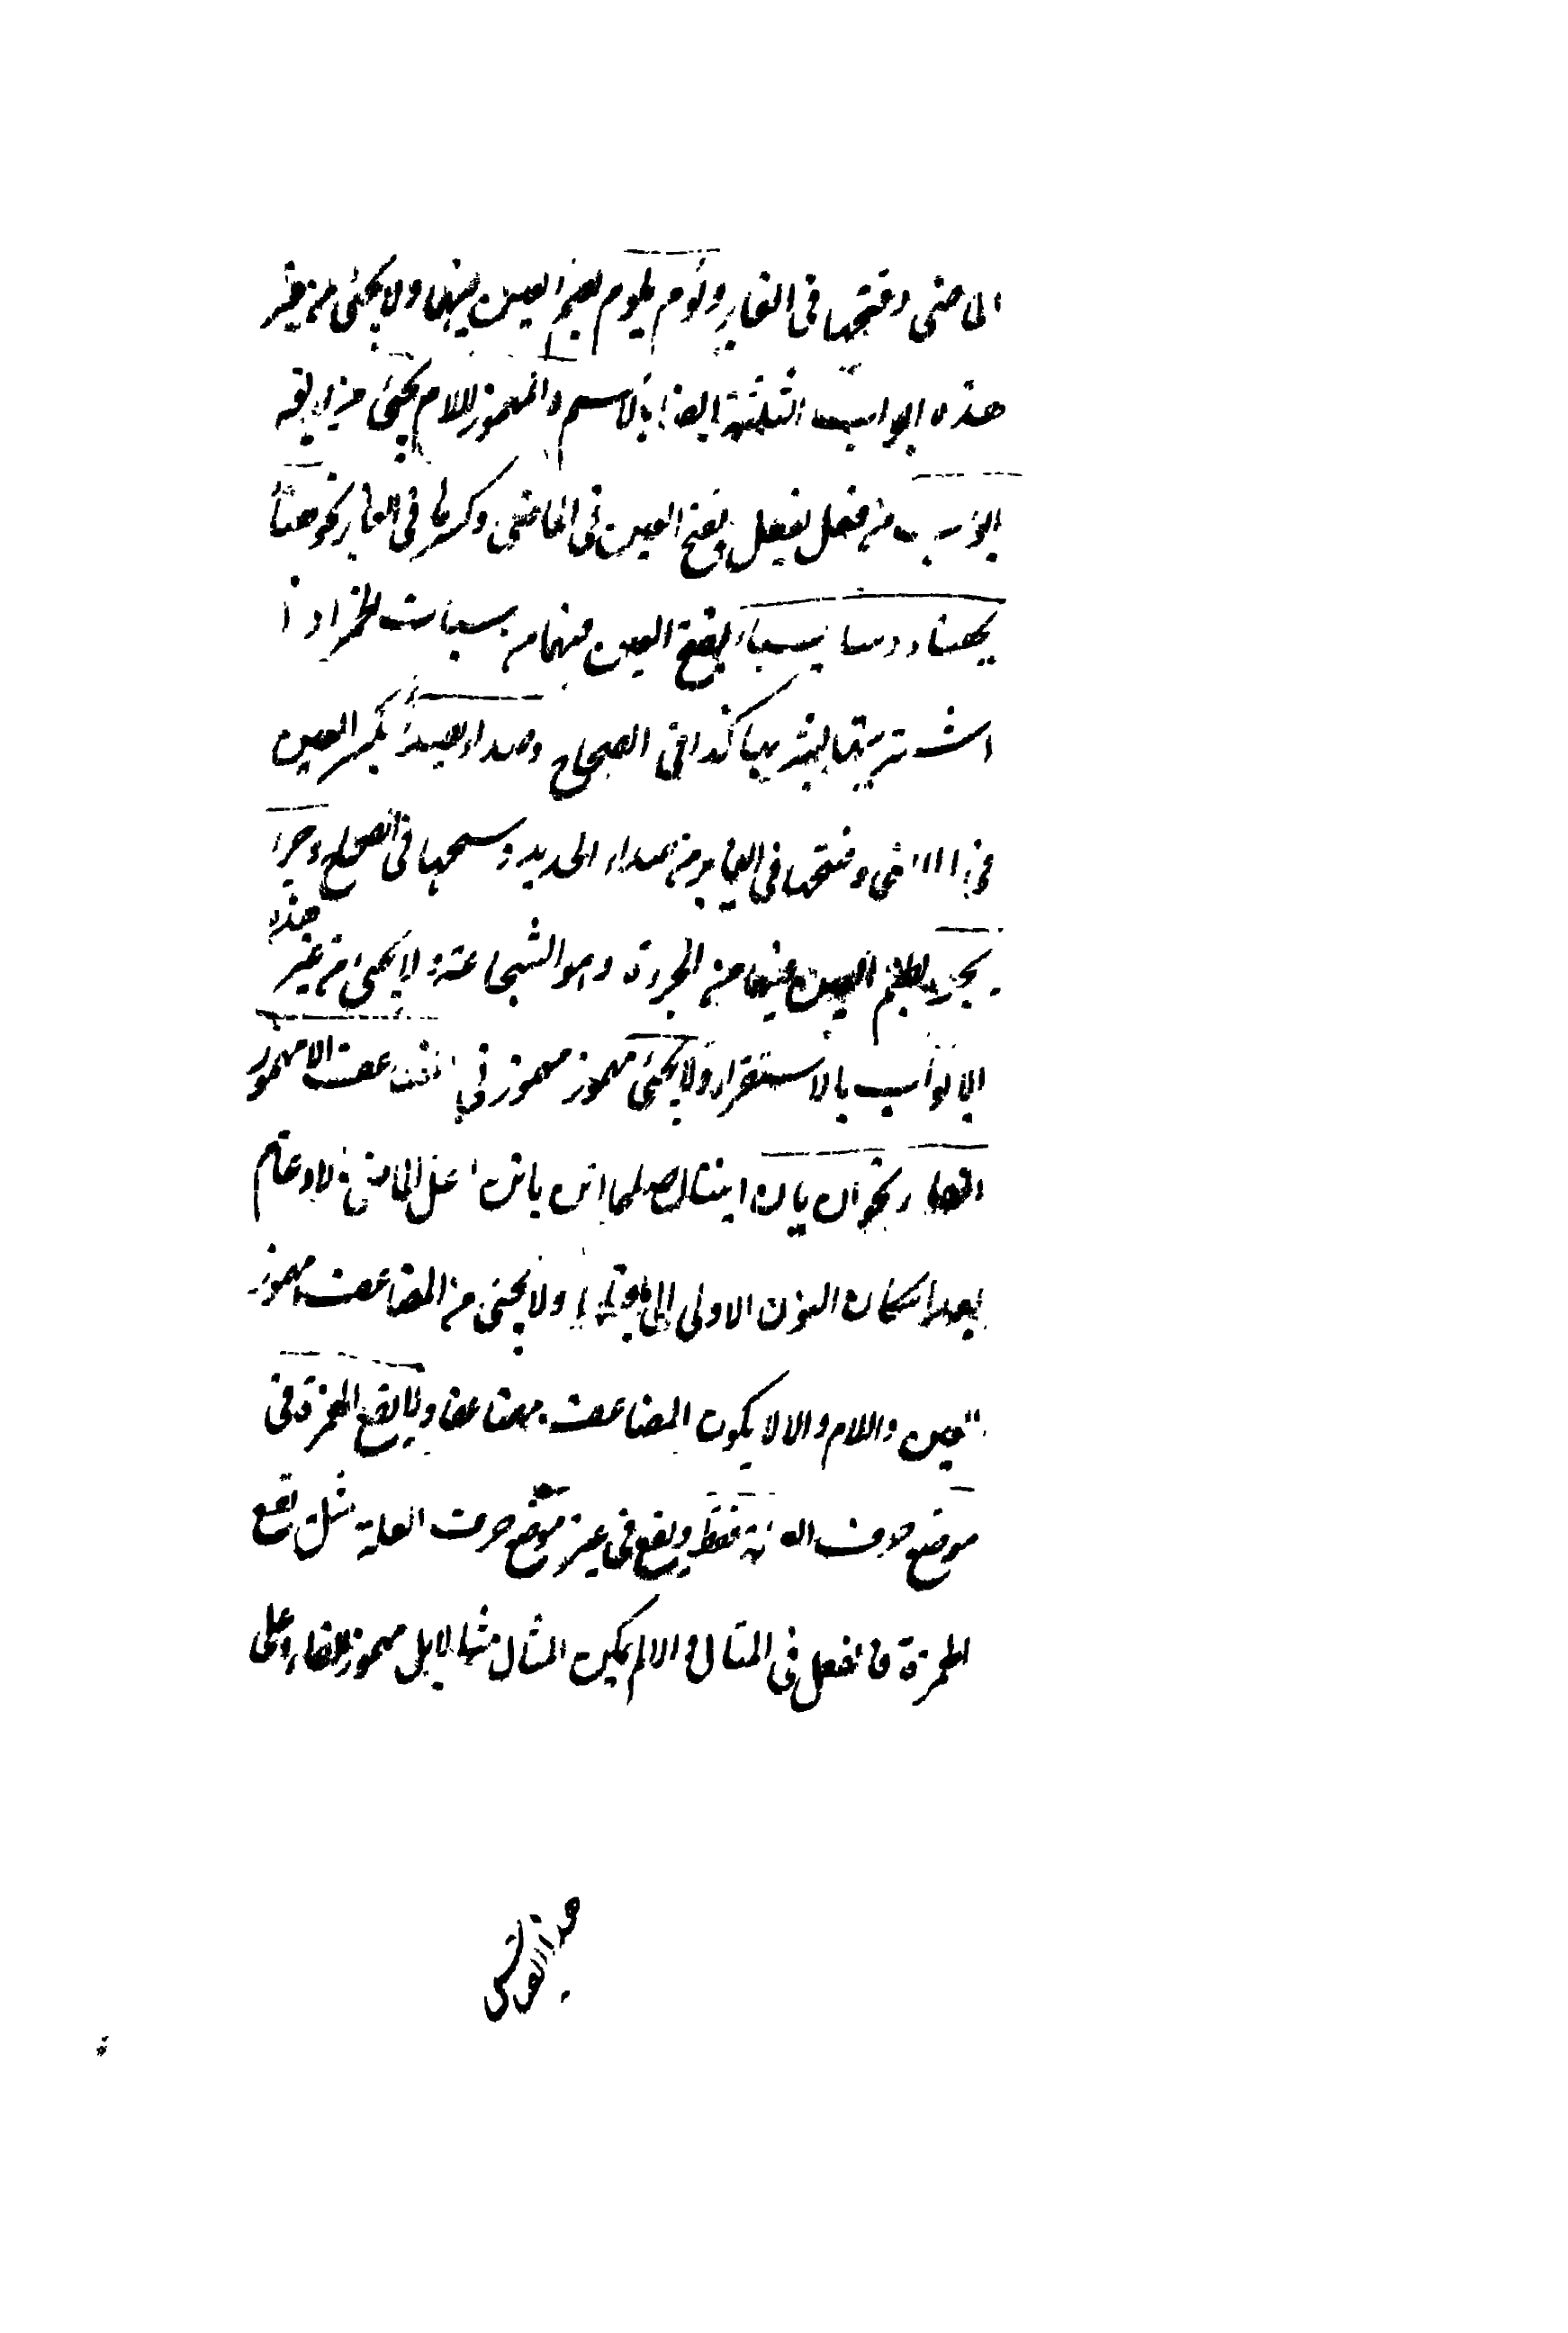 الماضى وفتحها فى الغابر ولوم يلوم بضم العين فيهما ولا يجئ من غير
هذه ابواب الثلثة ايضا بالاستقراء والمهموز اللام يجئ من اربعة
ابواب من فعل يفعل بفتح العين فى الماضى وكسرها فى الغابر نحو هنأ
يهنئ وسبأ يسبأ بفتح العين فيهما من سبات الخمر اذا
اشتريتها لتشربها كذا فى الصحاح وصدأ يصدأ بكسر العين
فى الماضى وفتحها فى الغابر من صداء الحديد وسخها فى الصحاح وجرأ
يجرء بضم العين فيهما من الجرءة وهو الشجاعة ولا يجئ من غير هذه
الابواب بالاستقراء ولا يجئ مهموز فى المضاعف الا مهموز
الفاء نحو ان يان اصلهما انن يانن الماضى بالادغام
بعد اسكان النون الاولى ولا يجئ من المضاعف مهموز
العين واللام والا لا يكون المضاعف مضاعفا ولا تقع الهمزة فى
موضع حروف العلة فقط ويقع فى غير موضع حرف العلة مثل تقع
الهمزة فاء الفعل فى المثال والا لم يكن المثال مثالا بل مهموز الفاء وعلى